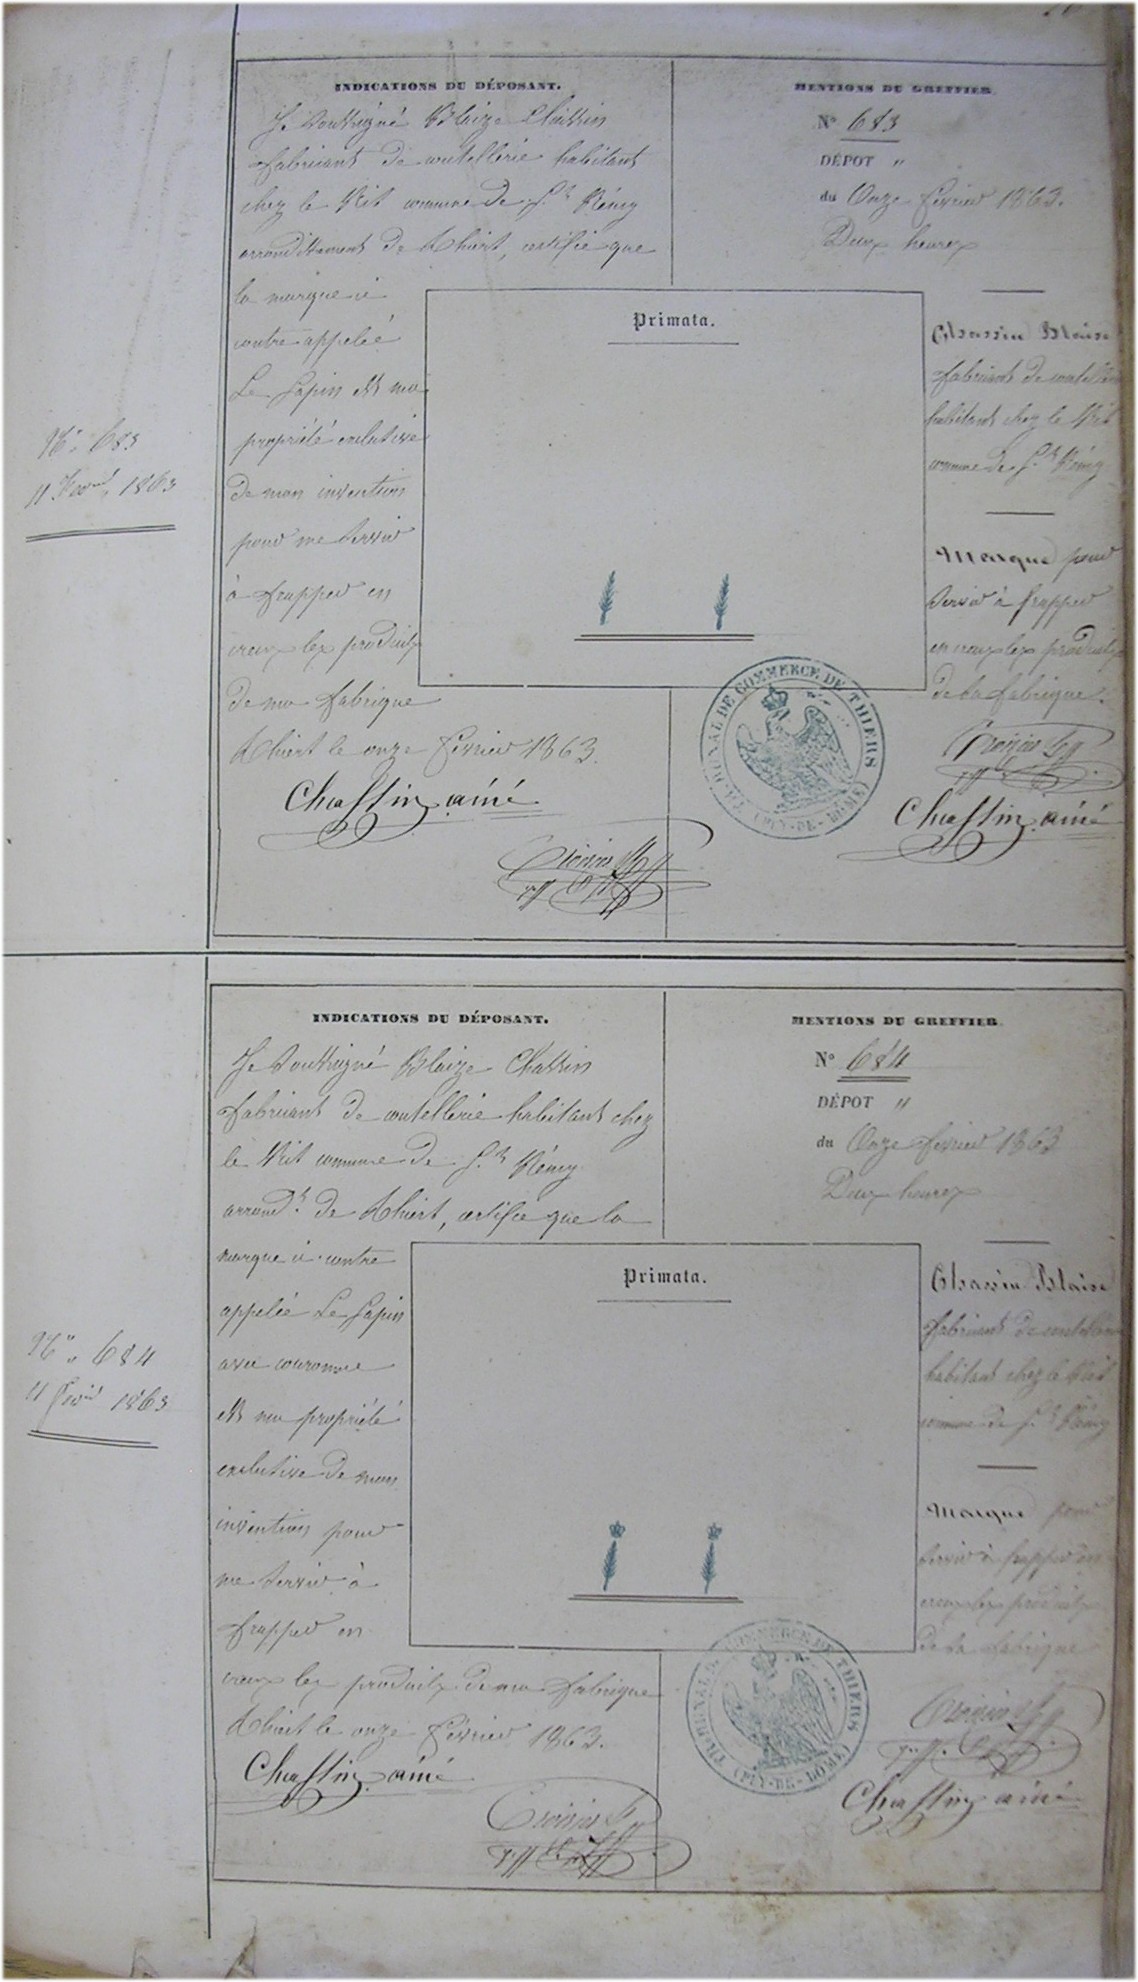 N° 683
11 Fevrier 1863
INDICATIONS DU DÉPOSANT.
Je soussigné Blaize Chassin
fabricant de coutellerie habitant
chez le Rit commune de St Rémy
arrondissement de Thiers, certifie que
la marque ci
contre appelée
Le Sapin est ma
propriété exclusive
de mon invention
pour me servir
à frapper en
creux les produits
de ma fabrique
Thiers le onze février 1863.
Chassin ainé
MENTIONS DU GREFFIER
N° 683
DÉPOT "
du Onze février 1863.
Deux heures
Primata.
Chassin Blaise
fabricant de coutellerie
habitant chez le Rit
commune de St Rémy
Marque pour
servir à frapper
en creux les produits
de la fabrique.
TRIBUNAL DE COMMERCE DE THIERS
(PUY-DE-DOME)
Chassin ainé
N° 684
11 Fevr 1863
INDICATIONS DU DÉPOSANT.
Je soussigné Blaize Chassin
fabricant de coutellerie habitant chez
le Rit commune de St Rémy
arrondt de Thiers, certifie que la
marque ci contre
appelée Le Sapin
avec couronne
est ma propriété
exclusive de mon
invention pour
me servir à
frapper en
creux les produits de ma fabrique
Thiers le onze février 1863.
Chassin ainé
MENTIONS DU GREFFIER
N° 684
DÉPOT "
du Onze février 1863
Deux heures
Primata.
Chassin Blaise
fabricant de coutellerie
habitant chez le Rit
commune de St Rémy
Marque pour
servir à frapper en
creux les produits
de la fabrique
TRIBUNAL DE COMMERCE DE THIERS
(PUY-DE-DOME)
Chassin ainé